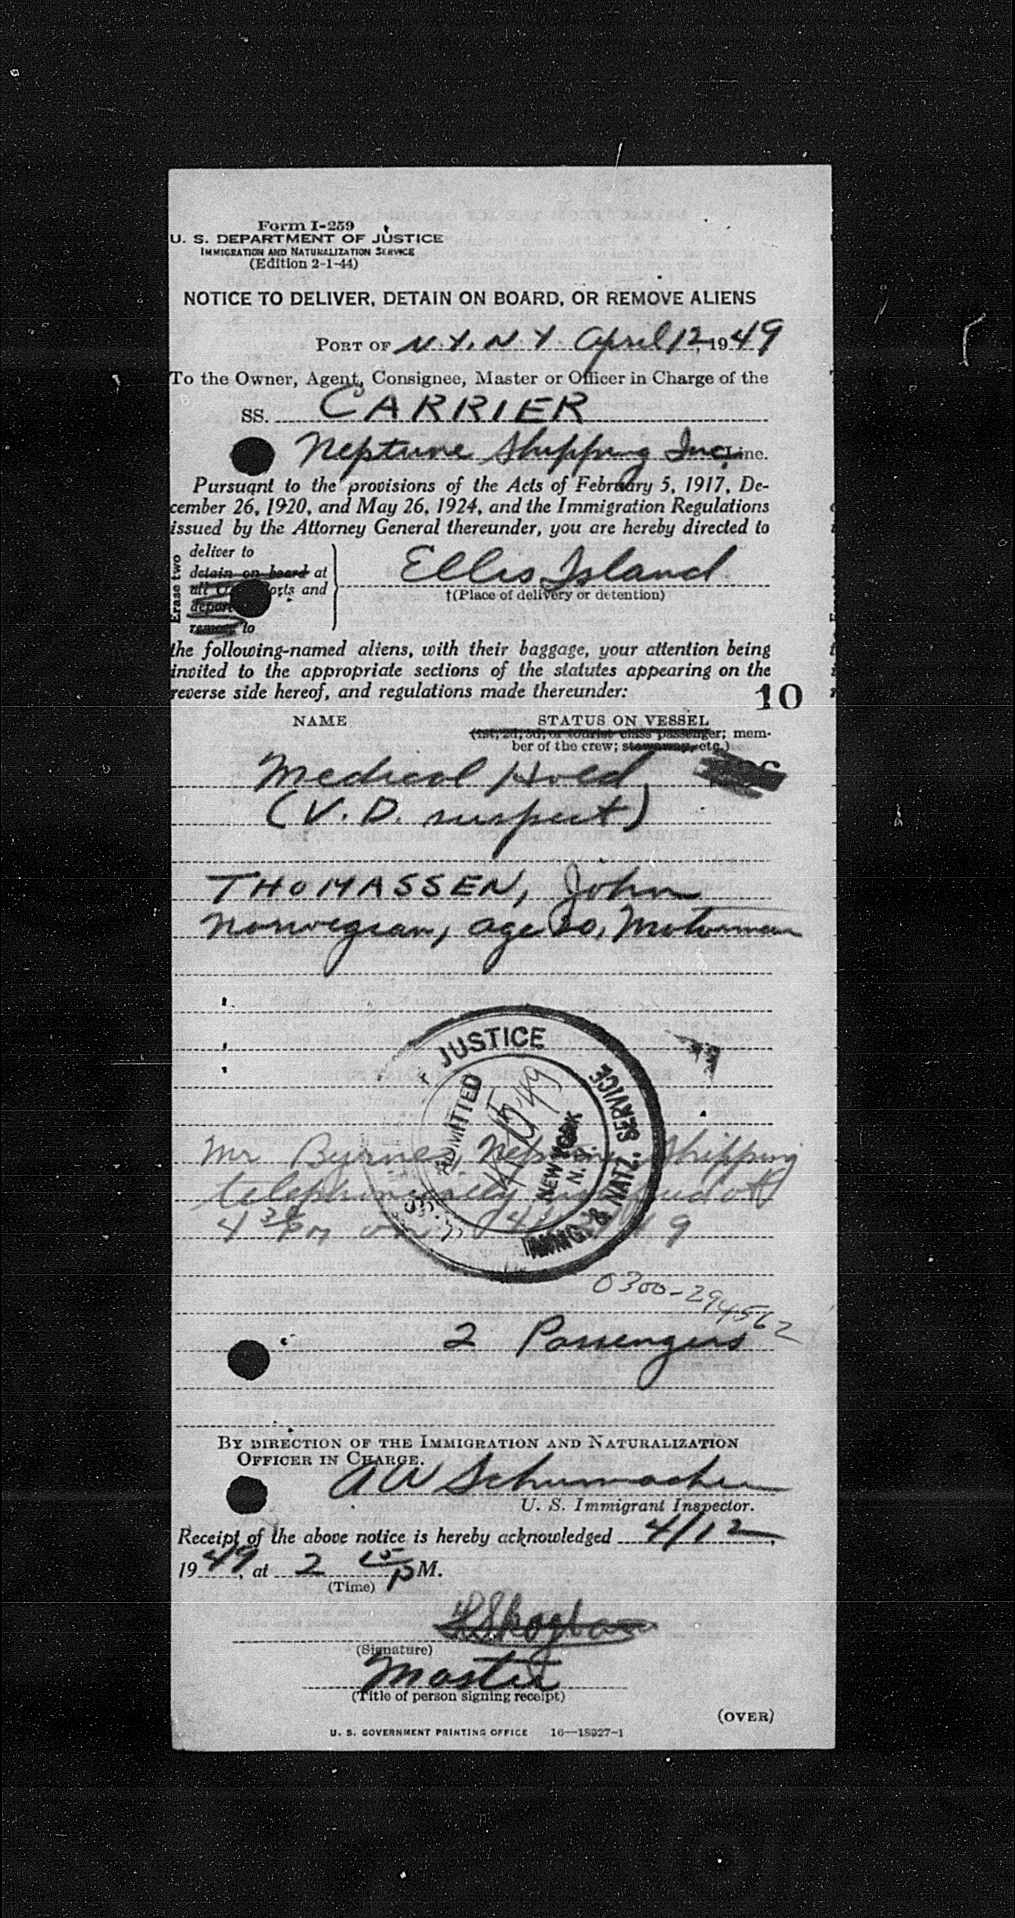 Form I-259
U. S. DEPARTMENT OF JUSTICE
IMMIGRATION AND NATURALIZATION SERVICE
(Edition 2-1-44)
NOTICE TO DELIVER, DETAIN ON BOARD, OR REMOVE ALIENS
PORT OF N.Y., N.Y. April 12, 1949
To the Owner, Agent, Consignee, Master or Officer in Charge of the
SS. CARRIER
Neptune Shipping Inc. Line.
Pursuant to the provisions of the Acts of February 5, 1917, De-
cember 26, 1920, and May 26, 1924, and the Immigration Regulations
issued by the Attorney General thereunder, you are hereby directed to
Erase two
deliver to
detain on board at
all U. ports and
depart
remove to
Ellis Island
†(Place of delivery or detention)
the following-named aliens, with their baggage, your attention being
invited to the appropriate sections of the statutes appearing on the
reverse side hereof, and regulations made thereunder:
10
NAME STATUS ON VESSEL
(1st, 2d, 3d, or tourist class passenger; mem-
ber of the crew; stowaway, etc.)
Medical Hold
(V.D. suspect)
THOMASSEN, John
Norwegian, age 20, Motorman
JUSTICE
IMMIG. & NATZ. SERVICE
ADMITTED
4/15/49
NEW YORK
N. Y.
Mr Byrne, Neptune Shipping
telephonically
4 30 PM on 9
0300-294562
2 Passengers
BY DIRECTION OF THE IMMIGRATION AND NATURALIZATION
OFFICER IN CHARGE.
A W Schumacher
U. S. Immigrant Inspector.
Receipt of the above notice is hereby acknowledged 4/12,
1949, at 2 15 P M.
(Time)
(Signature)
Master
(Title of person signing receipt)
(OVER)
U. S. GOVERNMENT PRINTING OFFICE 16—18927-1